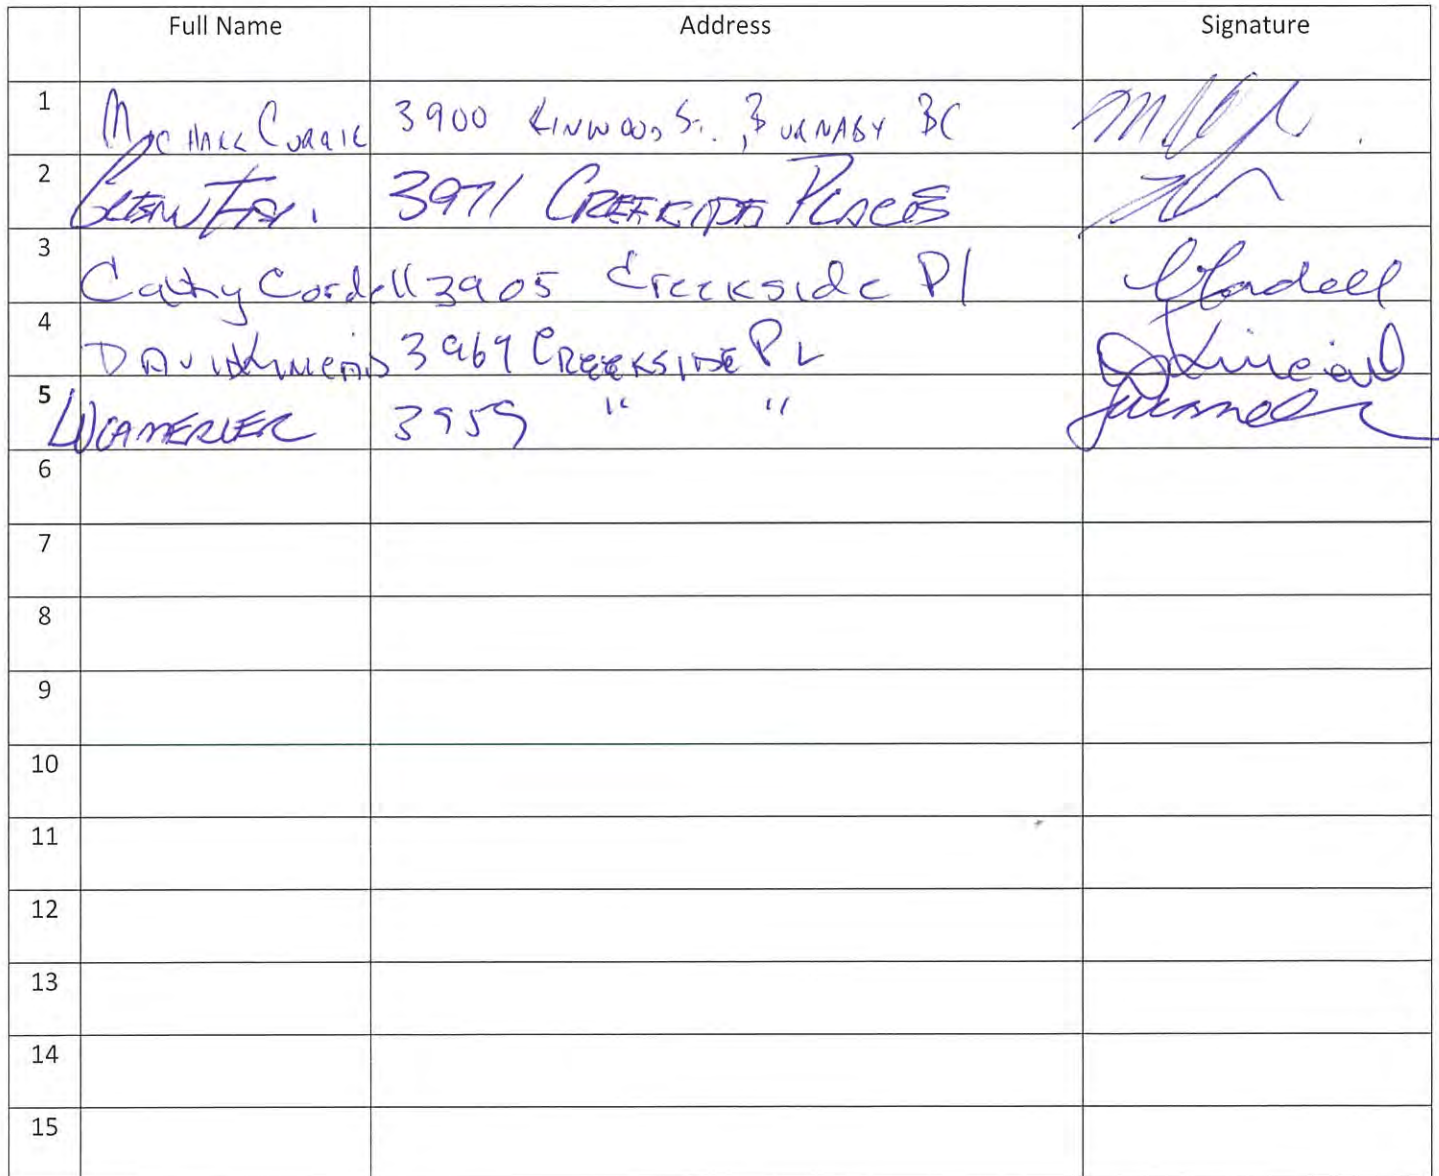 Full Name Address Signature
1 Michael Currie 3900 Kinwood St., Burnaby BC
2 Glenn 3971 Creekside Place
3 Cathy Cordell 3905 Creekside Pl CCordell
4 David Kincaid 3969 Creekside Pl DKincaid
5 3959 " "
6
7
8
9
10
11
12
13
14
15